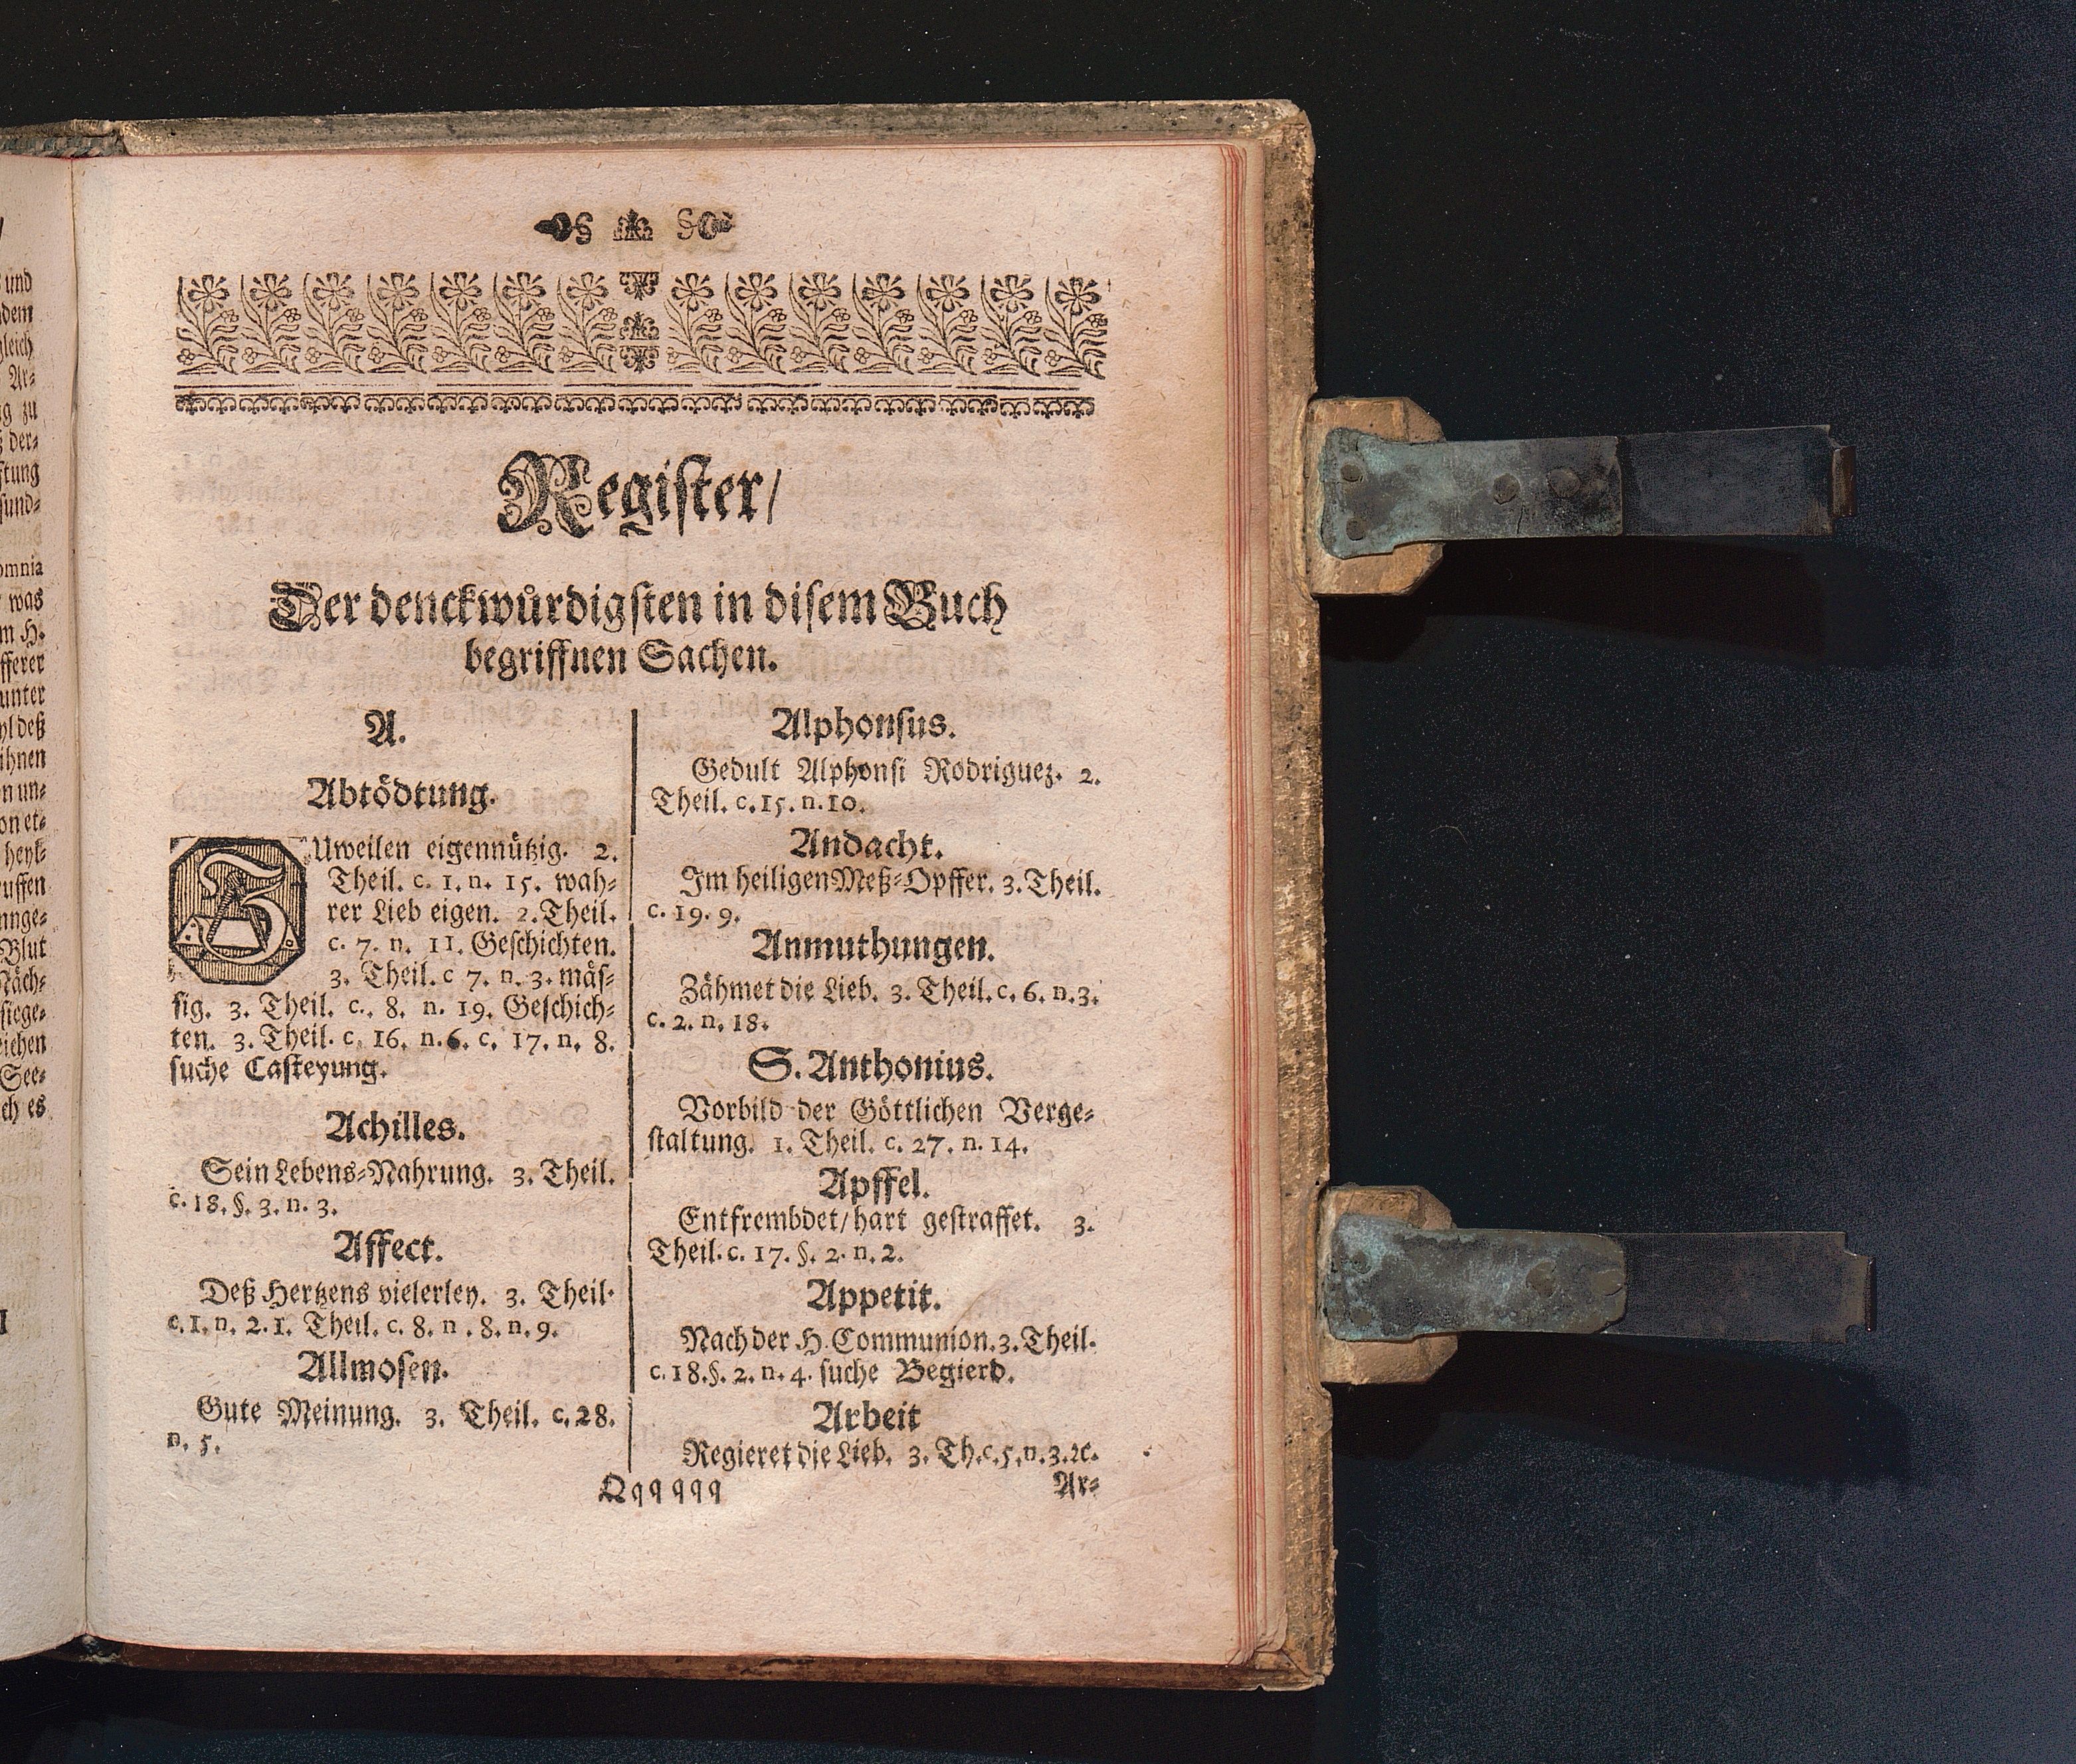 und
dem
gleich
Ar=
zu
der=
sund=
omnia
was
H.
unter
deß
ihnen
un=
et=
Blut
See=
es
Register/
Der denckwürdigsten in disem Buch
begriffnen Sachen.
A.
Abtödtung.
ZUweilen eigennützig. 2.
Theil. c. 1. n. 15. wah=
rer Lieb eigen. 2. Theil.
c. 7. n. 11. Geschichten.
3. Theil. c 7. n. 3. mäs=
sig. 3. Theil. c. 8. n. 19. Geschich=
ten. 3. Theil. c. 16. n. 6. c. 17. n. 8.
suche Casteyung.
Achilles.
Sein Lebens=Nahrung. 3. Theil.
c. 18. §. 3. n. 3.
Affect.
Deß Hertzens vielerley. 3. Theil.
c. 1. n. 2. 1. Theil. c. 8. n . 8. n. 9.
Allmosen.
Gute Meinung. 3. Theil. c. 28.
n. 5.
Alphonsus.
Gedult Alphonsi Rodriguez. 2.
Theil. c. 15. n. 10.
Andacht.
Im heiligen Meß=Opffer. 3. Theil.
c. 19. 9.
Anmuthungen.
Zähmet die Lieb. 3. Theil. c. 6. n. 3.
c. 2. n. 18.
S. Anthonius.
Vorbild der Göttlichen Verge=
staltung. 1. Theil. c. 27. n. 14.
Apffel.
Entfrembdet/hart gestraffet. 3.
Theil. c. 17. §. 2. n. 2.
Appetit.
Nach der H. Communion. 3. Theil.
c. 18. §. 2. n. 4. suche Begierd.
Arbeit
Regieret die Lieb. 3. Th. c. 5. n. 3. ꝛc.
Qqqqqq
Ar=